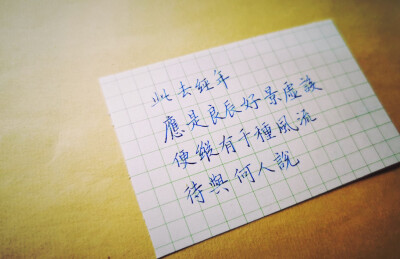 此去经年
應是良辰好景虛設
便縱有千種風流
待與何人說